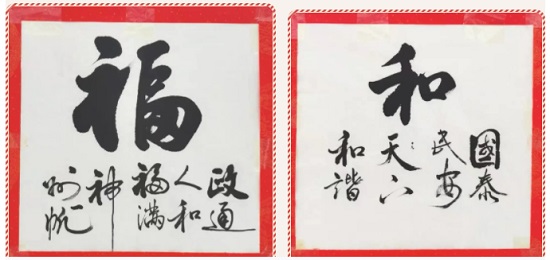 福
政通
人和
福满
神
州
和
國泰
民安
天下
和諧